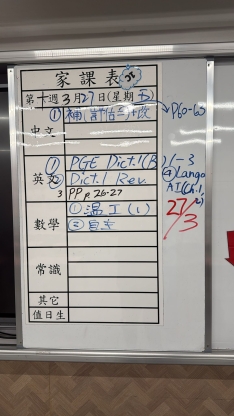 家課表
第十週3月27日(星期五)
中文 ①補(評估二)+改 → P60-63
英文 ① PGE Dict.1(B) 1-3
② Dict.1 Rev. ④ Lango
3 PP p.26-27 AI(Ch.1,
數學 ①溫工(1)
②自主
27/3
常識
其它
值日生